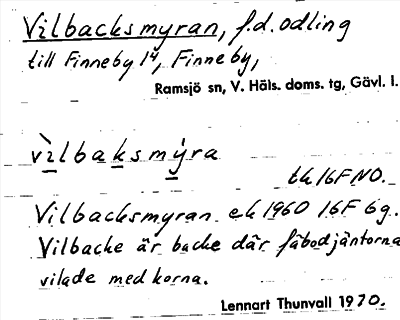 Vilbacksmyran, f.d. odling
till Finneby 14, Finneby,
Ramsjö sn, V. Häls. doms. tg, Gävl. l.
vìlbaksmỳra
tk 16F NO.
Vilbacksmyran ek 1960 16F 6g.
Vilbacke är backe där fäbodjäntorna
vilade med korna.
Lennart Thunvall 1970.